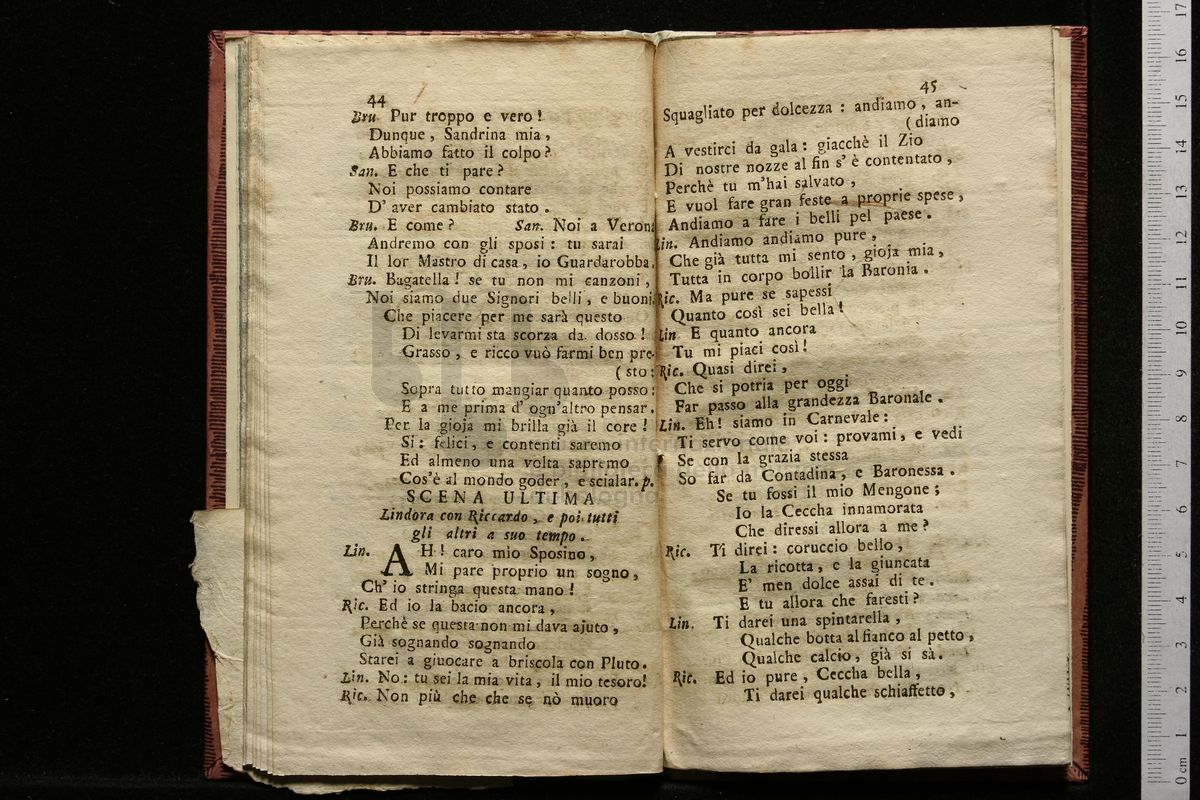 44
Bru. Pur troppo e vero!
Dunque, Sandrina mia,
Abbiamo fatto il colpo?
San. E che ti pare?
Noi possiamo contare
D' aver cambiato stato.
Bru. E come? San. Noi a Verona
Andremo con gli sposi: tu sarai
Il lor Mastro di casa, io Guardarobba.
Bru. Bagatella! se tu non mi canzoni,
Noi siamo due Signori belli, e buoni.
Che piacere per me sarà questo
Di levarmi sta scorza da dosso!
Grasso, e ricco vuò farmi ben pre-
(sto:
Sopra tutto mangiar quanto posso:
E a me prima d' ogn'altro pensar.
Per la gioja mi brilla già il core!
Si: felici, e contenti saremo
Ed almeno una volta sapremo
Cos'è al mondo goder, e scialar. p.
SCENA ULTIMA
Lindora con Riccardo, e poi tutti
gli altri a suo tempo.
Lin. AH! caro mio Sposino,
Mi pare proprio un sogno,
Ch' io stringa questa mano!
Ric. Ed io la bacio ancora,
Perchè se questa non mi dava ajuto,
Già sognando sognando
Starei a giuocare a briscola con Pluto.
Lin. No: tu sei la mia vita, il mio tesoro!
Ric. Non più che che se nò muoro
45
Squagliato per dolcezza: andiamo, an-
(diamo
A vestirci da gala: giacchè il Zio
Di nostre nozze al fin s' è contentato,
Perchè tu m'hai salvato,
E vuol fare gran feste a proprie spese,
Andiamo a fare i belli pel paese.
Lin. Andiamo andiamo pure,
Che già tutta mi sento, gioja mia,
Tutta in corpo bollir la Baronia.
Ric. Ma pure se sapessi
Quanto così sei bella!
Lin E quanto ancora
Tu mi piaci così!
Ric. Quasi direi,
Che si potria per oggi
Far passo alla grandezza Baronale.
Lin. Eh! siamo in Carnevale:
Ti servo come voi: provami, e vedi
Se con la grazia stessa
So far da Contadina, e Baronessa.
Se tu fossi il mio Mengone;
Io la Ceccha innamorata
Che diressi allora a me?
Ric. Ti direi: coruccio bello,
La ricotta, e la giuncata
E' men dolce assai di te.
E tu allora che faresti?
Lin. Ti darei una spintarella,
Qualche botta al fianco al petto,
Qualche calcio, già si sà.
Ric. Ed io pure, Ceccha bella,
Ti darei qualche schiaffetto,